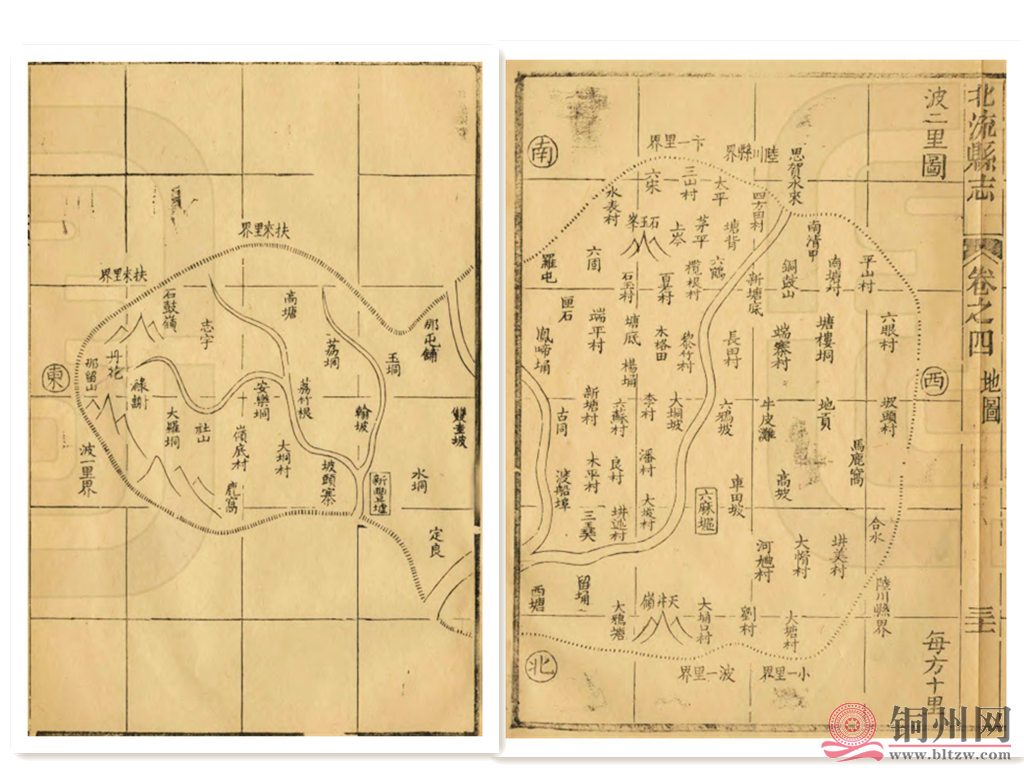 北流縣志
卷之四
地圖
三十二
波二里圖
每方十里
南
西
北
東
卞一里界
陸川縣界
思賀水來
四方田村
太平
三山村
六宋
水表村
石玉峯
上岑
茅平
塘背
南清甲
平山村
羅屯
六囿
石玉村
夏村
欖根村
六鶴
新塘底
銅鼓山
南塘村
匪石
鳳啼埇
端平村
塘底
木格田
黎竹村
長田村
端寨村
塘樓垌
六眼村
楊埇
新塘村
六蘇村
李村
大垌坡
六鴉坡
牛皮灘
地頁
坂頭村
古同
渡船埠
木平村
良村
潘村
車田坡
高坡
馬鹿窩
大坡村
六麻堀
合水
西塘
留埇
河旭村
井美村
陸川縣界
大鴉塘
天井嶺
大埇口村
劉村
大塘村
波一里界
小一里界
扶來里界
扶來里界
石鼓嶺
志宇
高塘
荔垌
那屯鋪
玉垌
那留山
大羅垌
社山
安樂垌
荔竹根
翰坡
雙圭坡
嶺底村
大垌村
坡頭寨
新豐墟
水垌
波一里界
鹿窩
定良
铜州网
www.bltzw.com